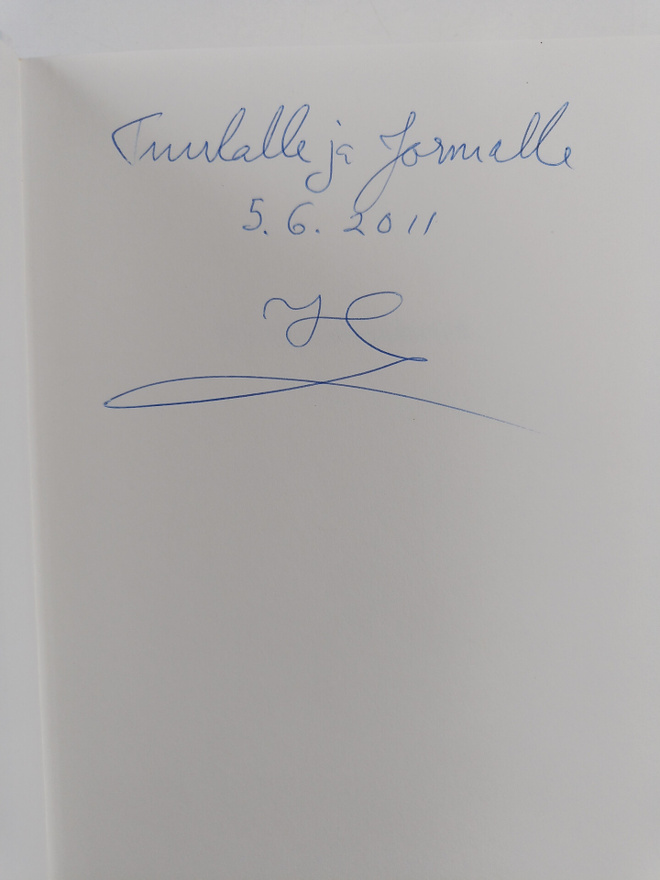 Tuulalle ja Jormalle
5.6.2011